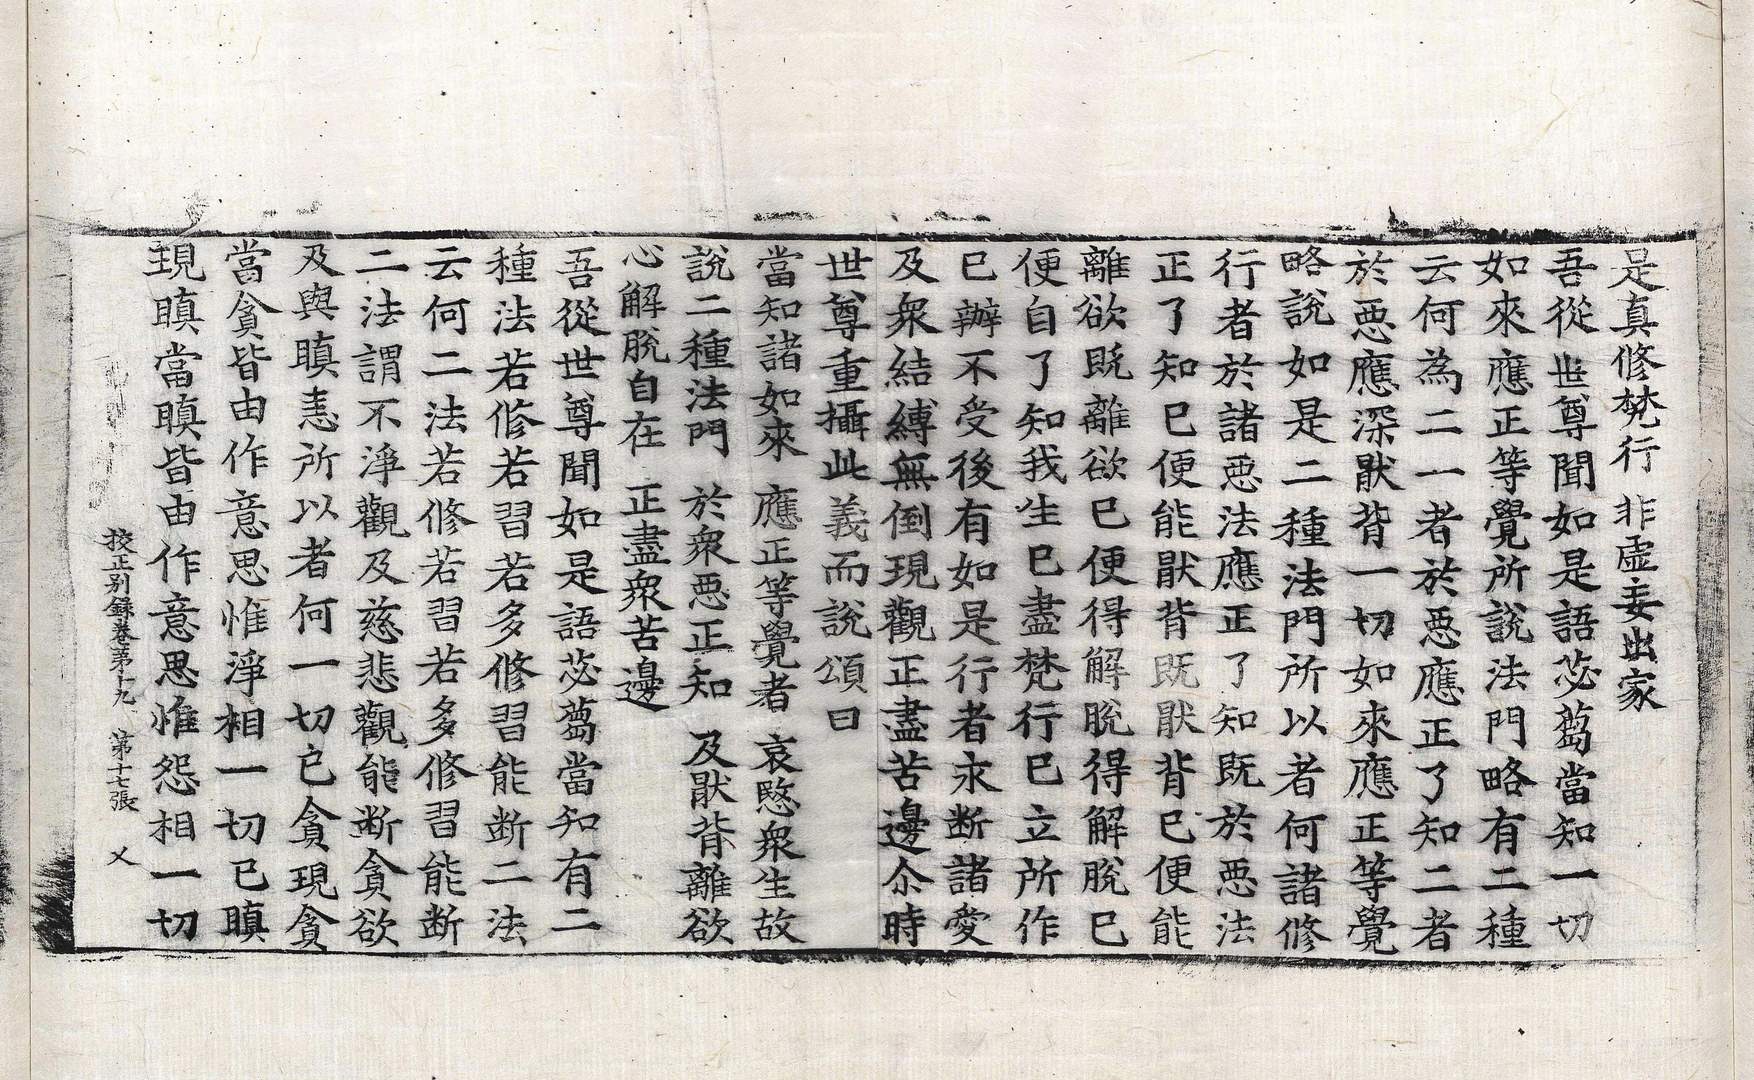 是真修梵行　非虛妄出家
吾從世尊聞如是語苾蒭當知一切
如來應正等覺所說法門略有二種
云何為二一者於惡應正了知二者
於惡應深猒背一切如來應正等覺
略說如是二種法門所以者何諸修
行者於諸惡法應正了知既於惡法
正了知已便能猒背既猒背已便能
離欲既離欲已便得解脫得解脫已
便自了知我生已盡梵行已立所作
已辦不受後有如是行者永斷諸愛
及眾結縛無倒現觀正盡苦邊尒時
世尊重攝此義而說頌曰
當知諸如來　應正等覺者　哀愍眾生故
說二種法門　於眾惡正知　及猒背離欲
心解脫自在　正盡眾苦邊
吾從世尊聞如是語苾蒭當知有二
種法若修若習若多修習能断二法
云何二法若修若習若多修習能断
二法謂不淨觀及慈悲觀能断貪欲
及與瞋恚所以者何一切已貪現貪
當貪皆由作意思惟淨相一切已瞋
現瞋當瞋皆由作意思惟怨相一切
校正別錄卷第十九　第十七張　乂